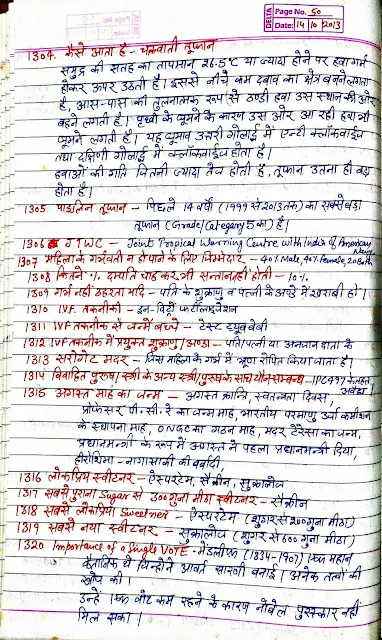 DELTA Page No. 50
Date: 14/10/2013
1304 कैसे आता है - चक्रवाती तूफान
समुद्र की सतह का तापमान 26.5°C या ज्यादा होने पर हवा गर्म
होकर ऊपर उठती है। इससे नीचे कम दबाव का क्षेत्र बनने लगता
है, आस-पास की तुलनात्मक रूप से ठण्डी हवा उस स्थान की ओर
बहने लगती है। पृथ्वी के घूमने के कारण उस ओर आ रही हवा भी
घूमने लगती है। यह घुमाव उत्तरी गोलार्द्ध में एन्टी क्लॉकवाईज
तथा दक्षिणी गोलार्द्ध में क्लॉकवाईज होता है।
हवाओं की गति जितनी ज्यादा तेज होती है, तूफान उतना ही बड़ा
होता है।
1305 पाइलिन तूफान - पिछले 14 वर्षों (1999 से 2013 तक) का सबसे बड़ा
तूफान (Grade/Category 5 का) है।
1306 JTWC - Joint Tropical Warning Centre with India of American
Navy
1307 महिला के गर्भवती न होपाने के लिए जिम्मेदार - 40% Male, 40% Female, 20% Both
1308 कितने % दम्पति चाहकर भी सन्तान नहीं होती - 10%
1309 गर्भ नहीं ठहरता यदि - पति के शुक्राणु व पत्नी के अण्डे में खराबी हो।
1310 IVF तकनीकी - इन-विट्रो फर्टीलाइजेशन
1311 IVF तकनीक से जन्में बच्चे - टेस्ट ट्यूब बेबी
1312 IVF तकनीक में प्रयुक्त शुक्राणु/अण्डा - पति/पत्नी या अनजान दाता के
1313 सरोगेट मदर - जिस महिला के गर्भ में भ्रूण रोपित किया जाता है।
1314 विवाहित पुरुष/स्त्री के अन्य स्त्री/पुरुष के साथ यौन सम्बन्ध - IPC 497 के तहत
अवैध
1315 अगस्त माह का जन्म - अगस्त क्रान्ति, स्वतन्त्रता दिवस,
प्रोफेसर पी.सी.रे का जन्म माह, भारतीय परमाणु ऊर्जा कमीशन
के स्थापना माह, ONGC का गठन माह, मदर टैरेसा का जन्म,
प्रधानमन्त्री के रूप में अगस्त ने पहला प्रधानमन्त्री दिया,
हीरोशिमा - नागासाकी की बर्बादी,
1316 लोकप्रिय स्वीटनर - ऐस्पारटेम, सैक्रीन, सुक्रालोज
1317 सबसे पुराना Sugar से 300 गुना मीठा स्वीटनर - सैक्रीन
1318 सबसे लोकप्रिय Sweetner - ऐस्पारटेम (शुगर से 200 गुना मीठा)
1319 सबसे नया स्वीटनर - सुक्रालोज (शुगर से 600 गुना मीठा)
1320 Importance of a Single VOTE - मेंडलीफ (1834-1907) एक महान
वैज्ञानिक थे जिन्होंने आवर्त सारणी बनाई। अनेक तत्वों की
खोज की।
उन्हें एक वोट कम रहने के कारण नोबेल पुरस्कार नहीं
मिल सका।